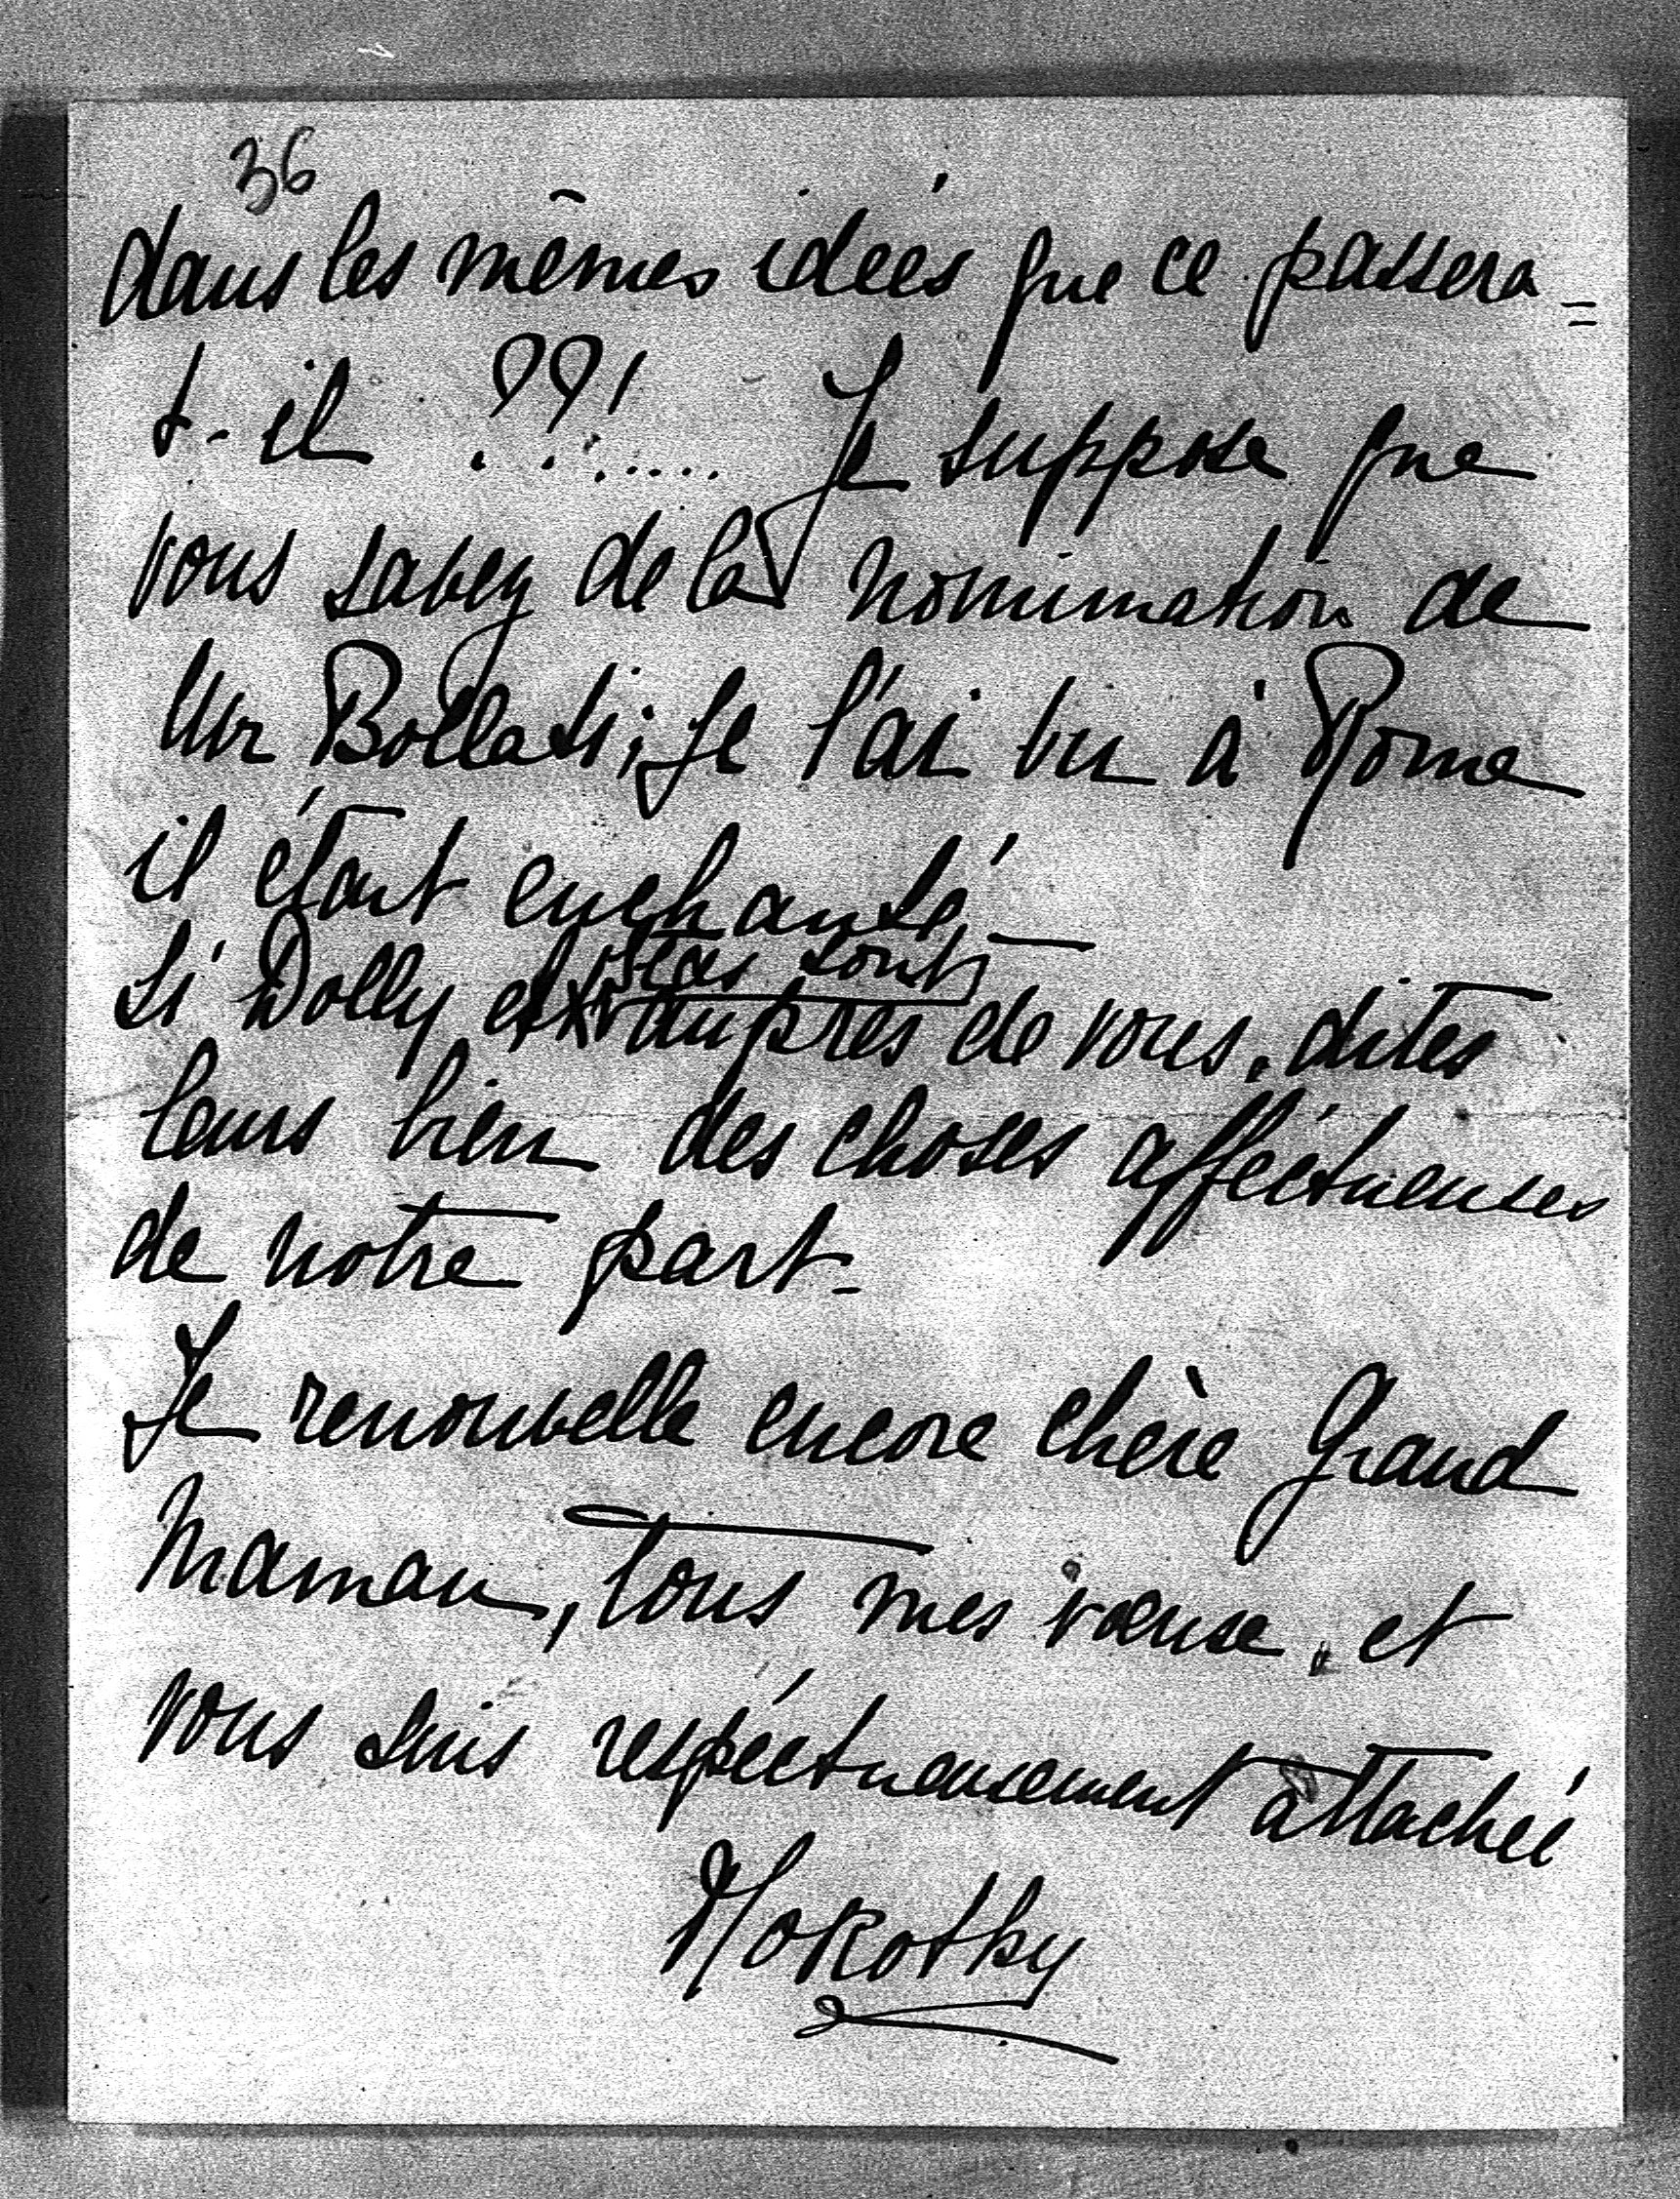 36
dans les mêmes idées que ce passera=
t-il ??!..... Je suppose que
vous savez de la nomination de
Mr Bollati; je l'ai vu à Rome
il était enchanté —
sont
Si Dolly et auprès de vous, dites
leurs bien des choses afféctueuses
de notre part-
Je renouvelle encore chère Grand
Maman, tous mes vœuxe, et
vous suis respéctueusement attachée